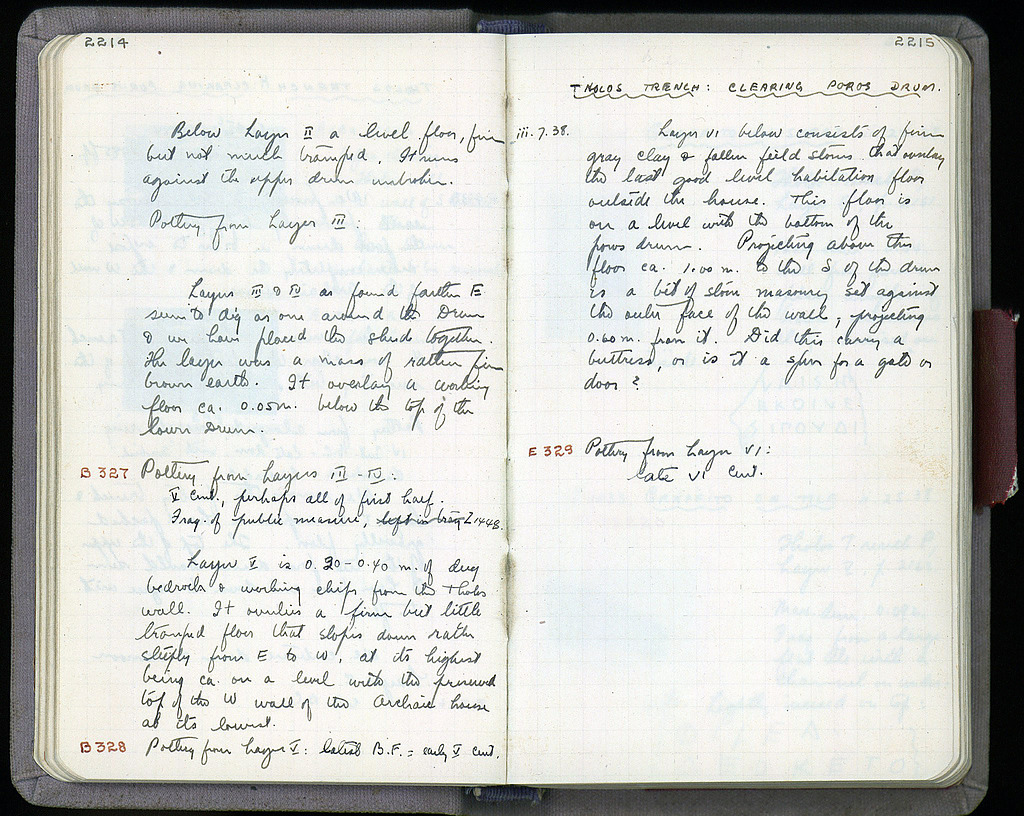 2214
Below Layer II a level floor, firm
but not much tramped. It runs
against the upper drum unbroken.
Pottery from Layer III:
Layers III & IV as found farther E
seem to dig as one around the Drum
& we have placed the sherds together.
The layer was a mass of rather firm
brown earth. It overlay a working
floor ca. 0.05m. below the top of the
lower Drum.
B 327 Pottery from Layers III - IV:
V cent., perhaps all of first half.
Frag. of public measure, left in tray Z 1448.
Layer V is 0.30-0.40 m. of dug
bedrock & working chips from the Tholos
wall. It overlies a firm but little
tramped floor that slopes down rather
steeply from E to W, at its highest
being ca. on a level with the preserved
top of the W wall of the Archaic house
at its lowest.
B 328 Pottery from Layer V: latest B.F. = early V cent.
2215
THOLOS TRENCH: CLEARING POROS DRUM.
iii.7.38. Layer VI below consists of firm
gray clay & fallen field stones that overlay
the last good level habitation floor
outside the house. This floor is
on a level with the bottom of the
poros drum. Projecting above this
floor ca. 1.00 m. to the S of the drum
is a bit of stone masonry set against
the outer face of the wall, projecting
0.60 m. from it. Did this carry a
buttress, or is it a spur for a gate or
door?
E 329 Pottery from Layer VI:
late VI cent.